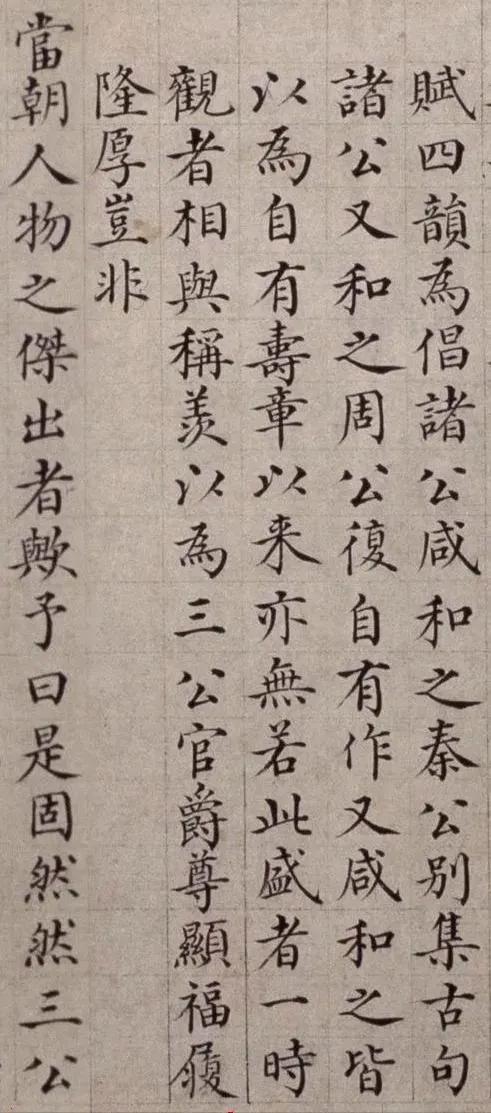 賦四韻為倡諸公咸和之秦公別集古句
諸公又和之周公復自有作又咸和之皆
以為自有壽章以来亦無若此盛者一時
觀者相與稱羡以為三公官爵尊顯福履
隆厚豈非
當朝人物之傑出者歟予曰是固然然三公